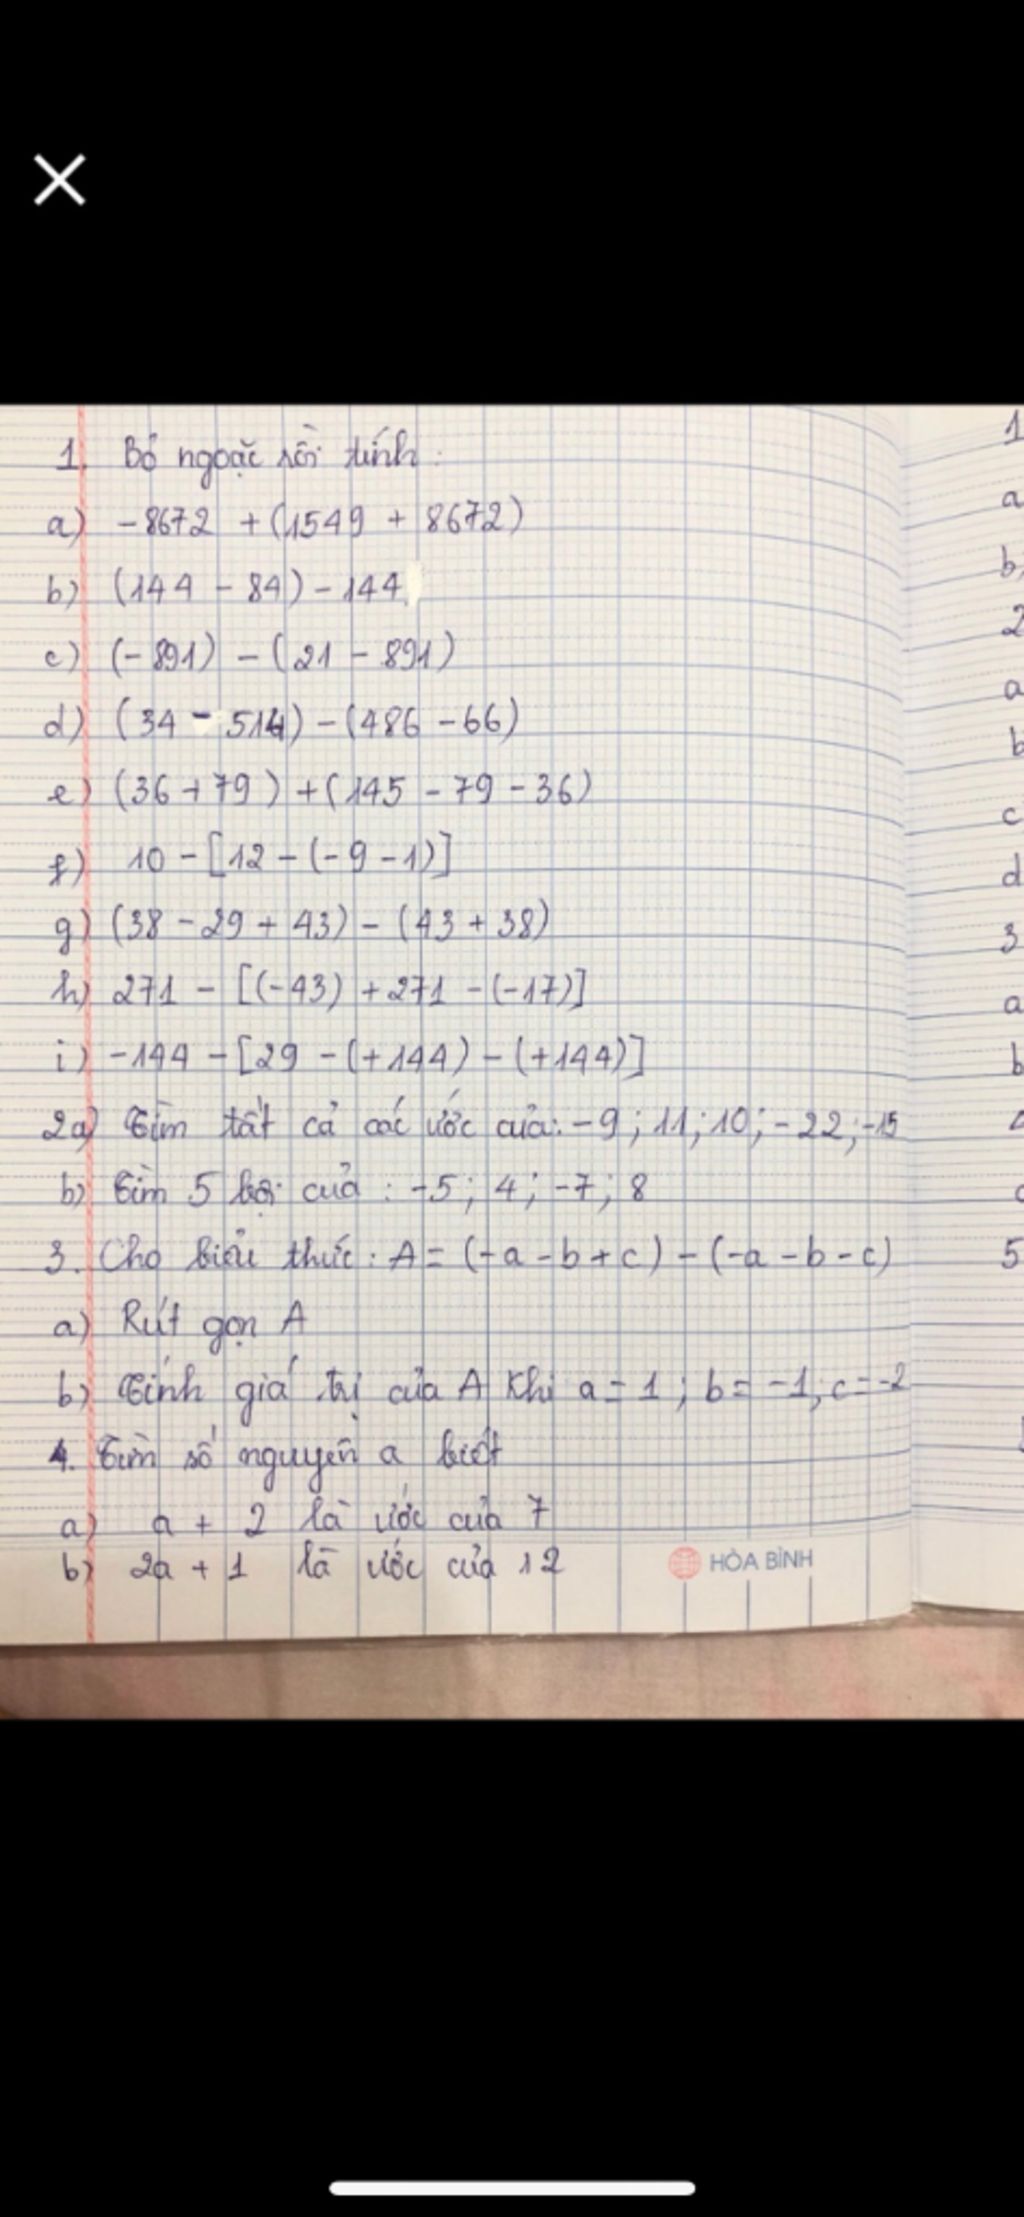 1. Bỏ ngoặc rồi tính:
a) -8672 + (1549 + 8672)
b) (144 - 84) - 144
c) (-891) - (21 - 891)
d) (34 - 514) - (486 - 66)
e) (36 + 79) + (145 - 79 - 36)
f) 10 - [12 - (-9 - 1)]
g) (38 - 29 + 43) - (43 + 38)
h) 271 - [(-43) + 271 - (-17)]
i) -144 - [29 - (+144) - (+144)]
2a) Tìm tất cả các ước của: -9; 11; 10; -22; -15
b) Tìm 5 bội của: -5; 4; -7; 8
3. Cho biểu thức: A = (-a - b + c) - (-a - b - c)
a) Rút gọn A
b) Tính giá trị của A khi a = 1; b = -1; c = -2
4. Tìm số nguyên a biết
a) a + 2 là ước của 7
b) 2a + 1 là ước của 12
HÒA BÌNH
1
a
b)
2
a
b
c
d
3
a
b
5